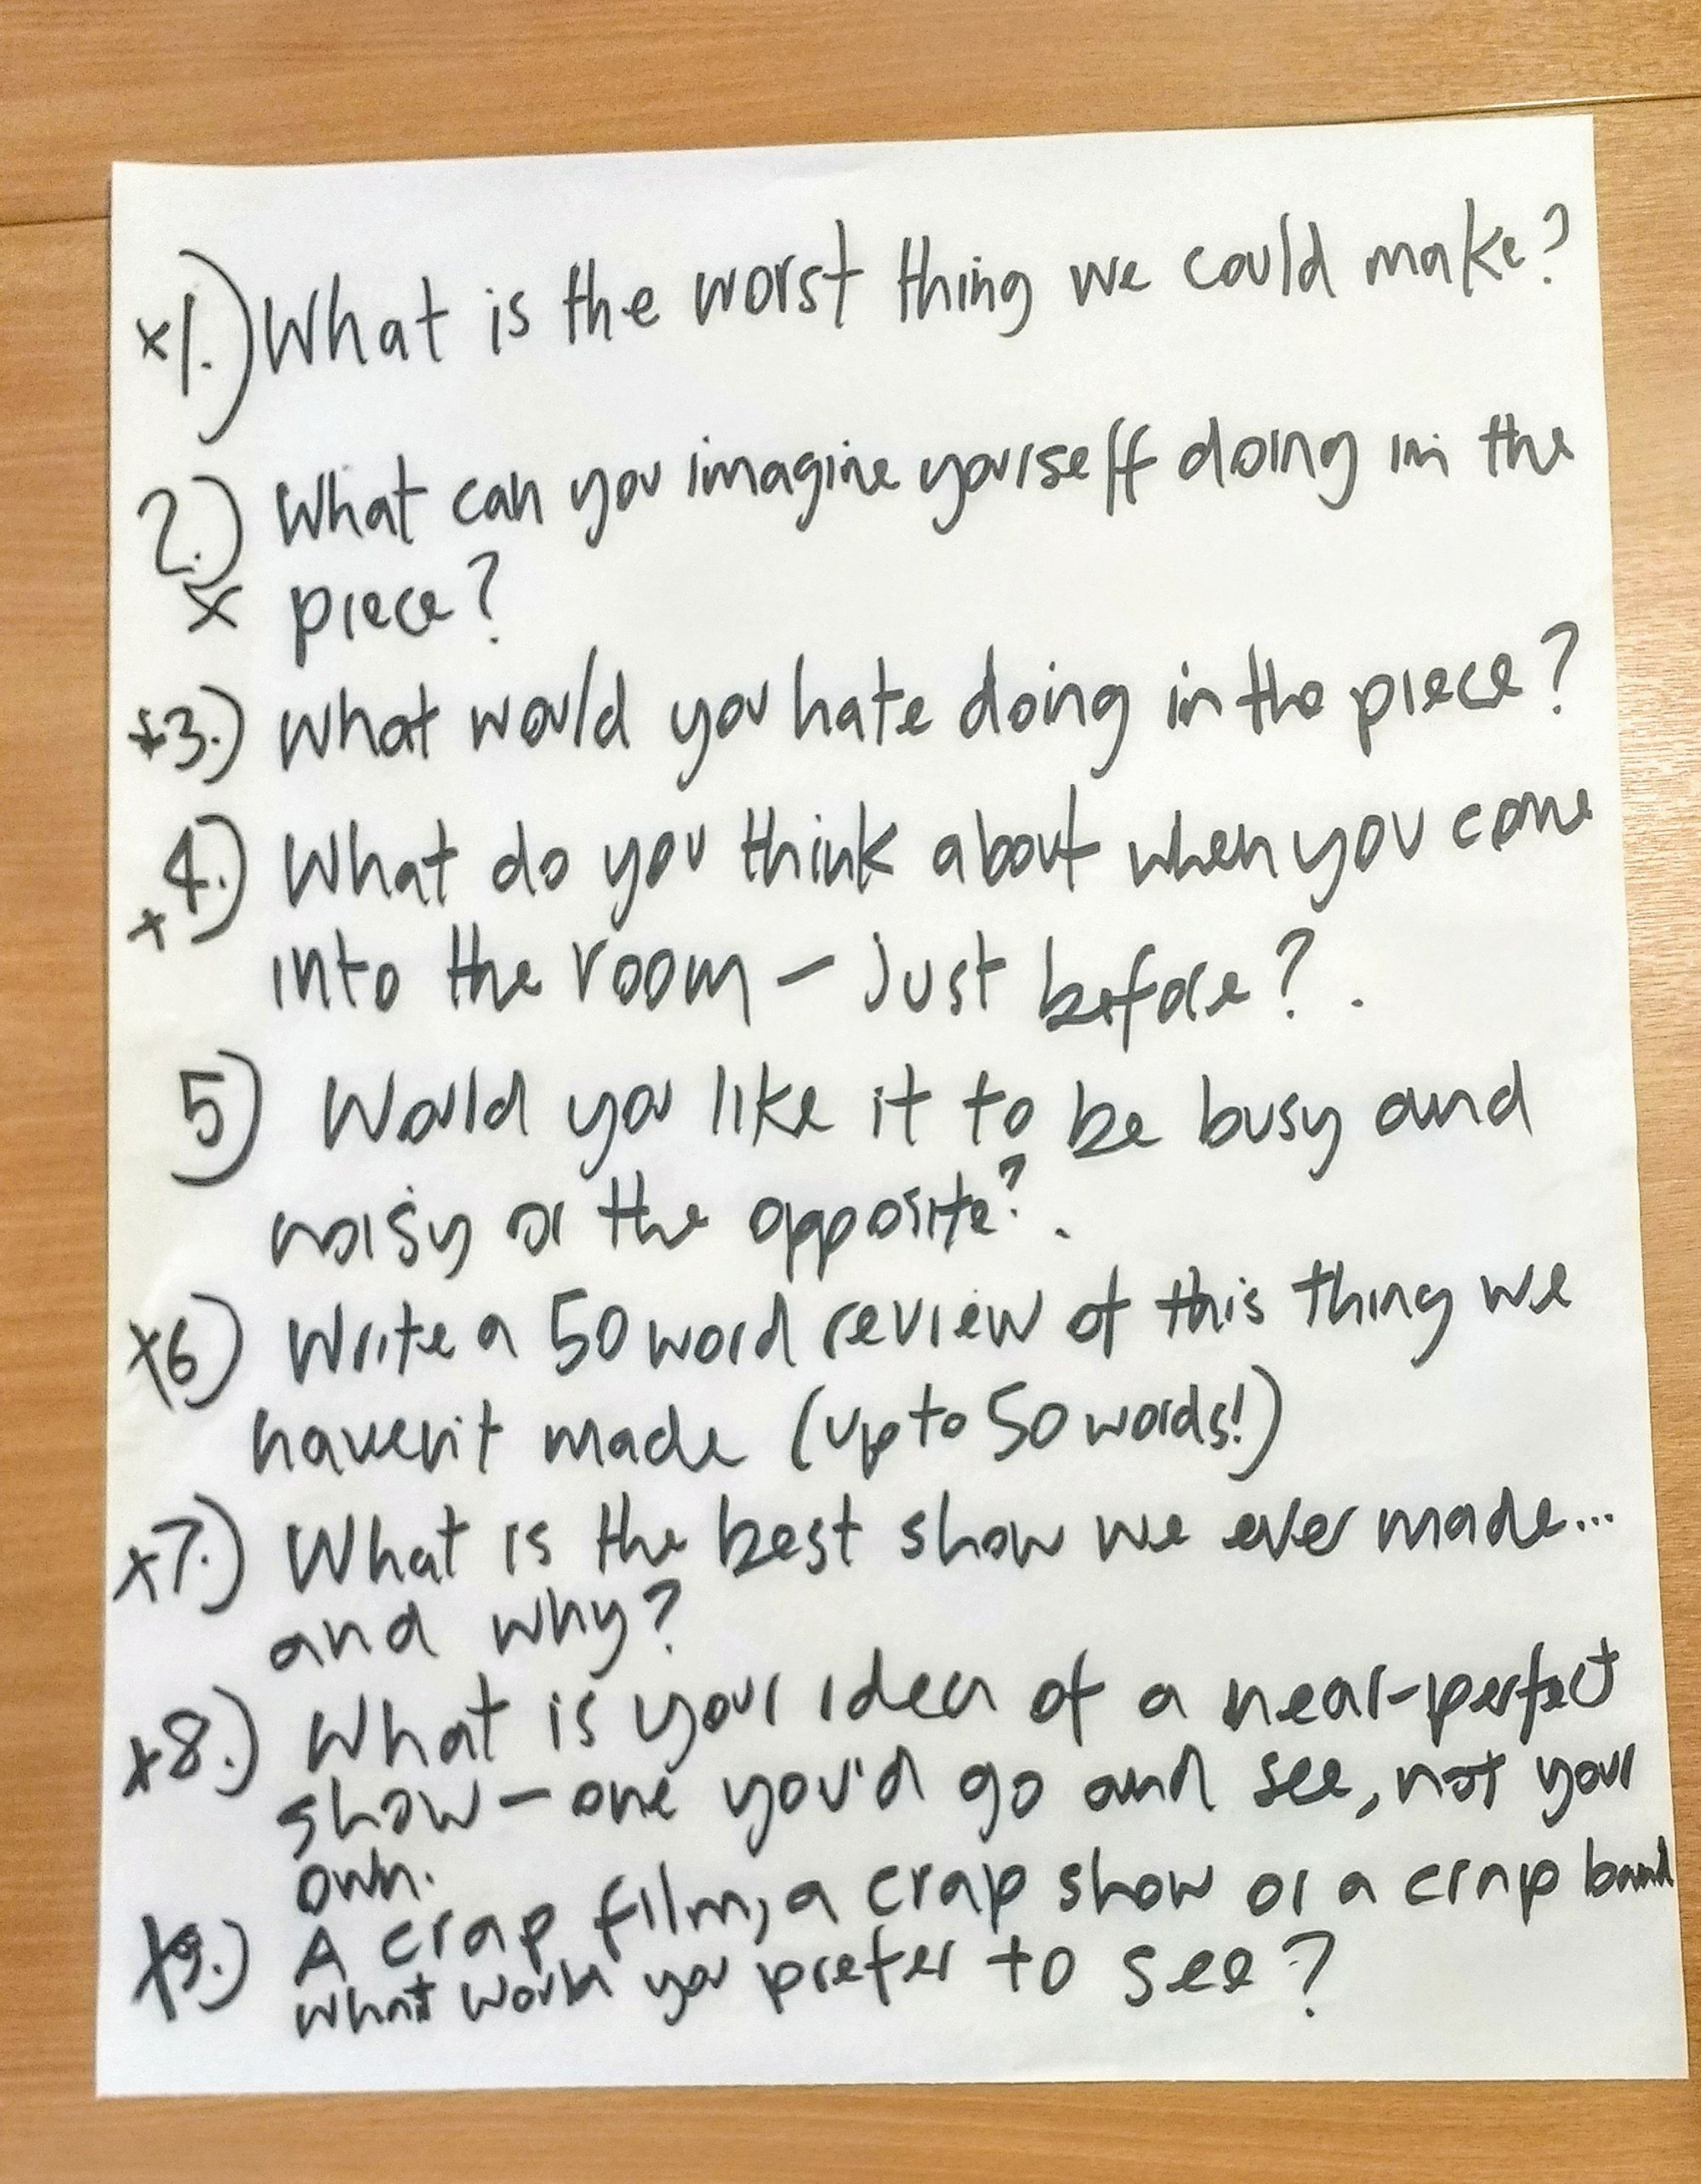 x1.) What is the worst thing we could make?
2.) What can you imagine yourself doing in the
x piece?
x3.) What would you hate doing in the piece?
4.) What do you think about when you come
x into the room – just before? .
5) Would you like it to be busy and
noisy or the opposite? .
x6) Write a 50 word review of this thing we
haven't made (up to 50 words!)
x7.) What is the best show we ever made...
and why?
x8.) What is your idea of a near-perfect
show – one you'd go and see, not your
own.
x9.) A crap film, a crap show or a crap band
what would you prefer to see?